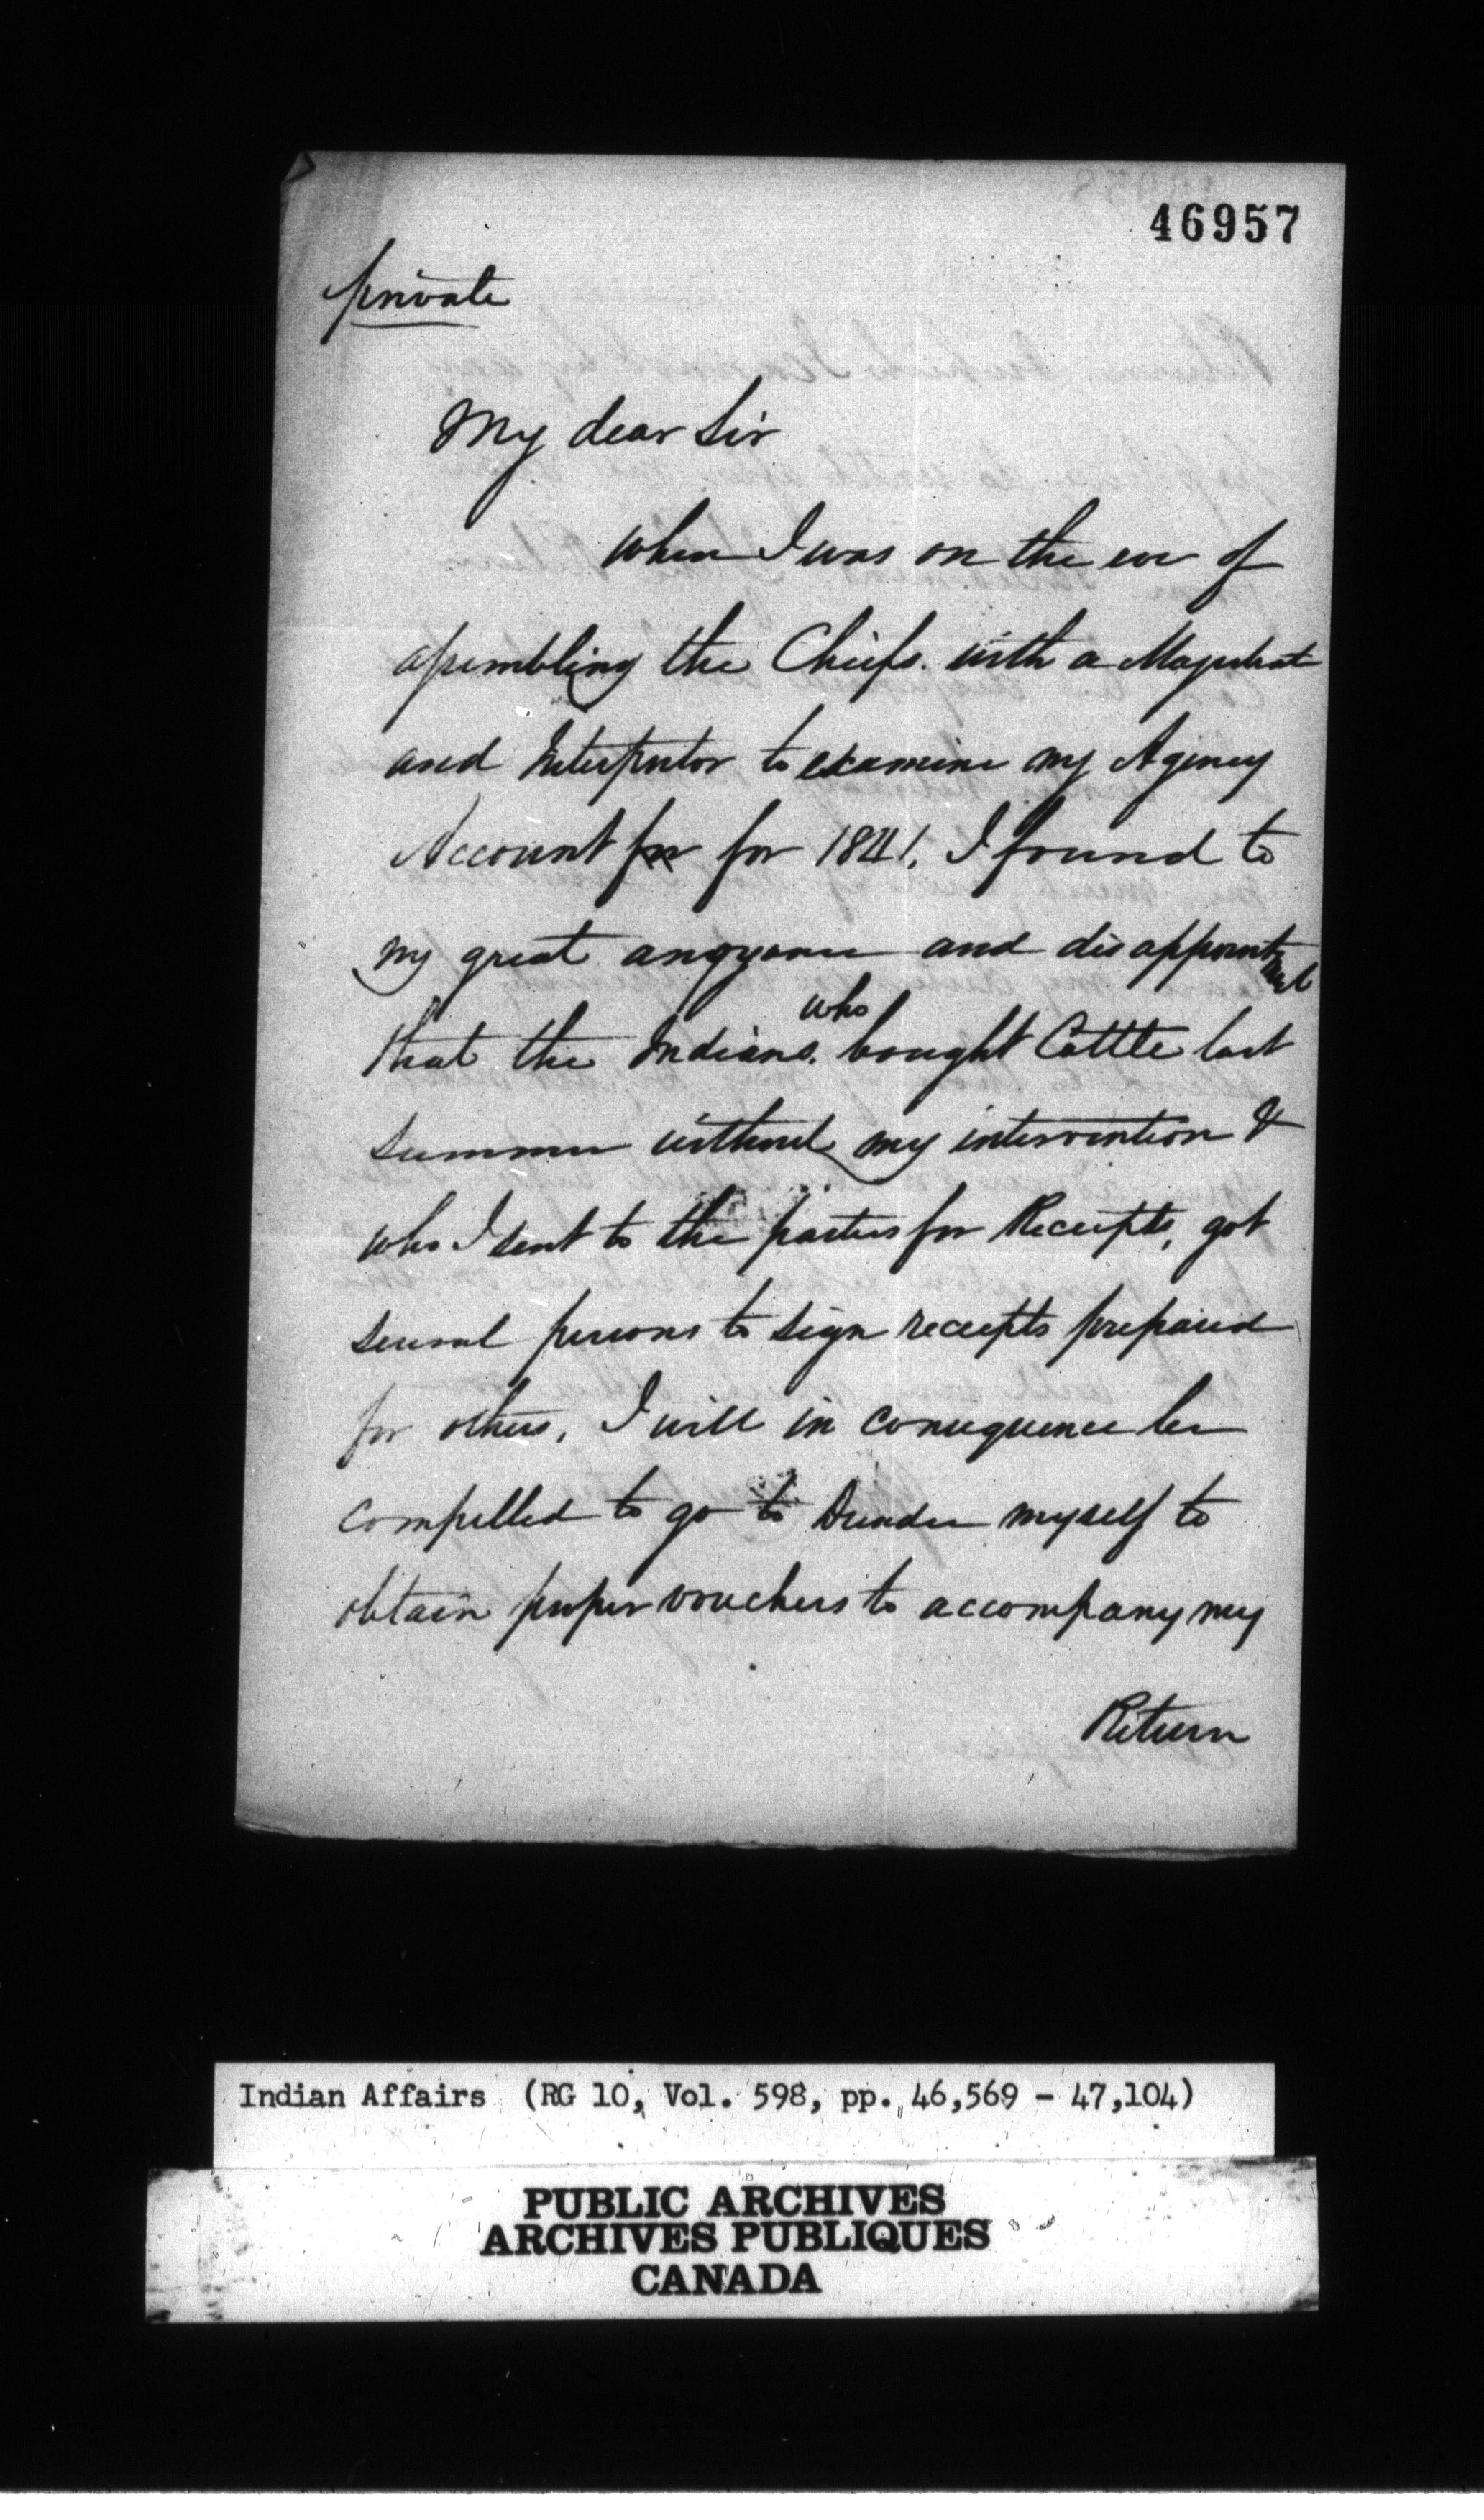 46957
private
My dear Sir
When I was on the eve of
assembling the Chiefs. with a Magistrate
and Interpretor to examine my Agency
Account for for 1841, I found to
my great annoyance and disappointment
that the Indians. who bought Cattle last
summer without my intervention &
who I sent to the parties for Receipts, got
several persons to sign receipts prepared
for others, I will in consequence be
compelled to go to Dundee myself to
obtain proper vouchers to accompany my
Return
Indian Affairs (RG 10, Vol. 598, pp. 46,569 - 47,104)
PUBLIC ARCHIVES
ARCHIVES PUBLIQUES
CANADA